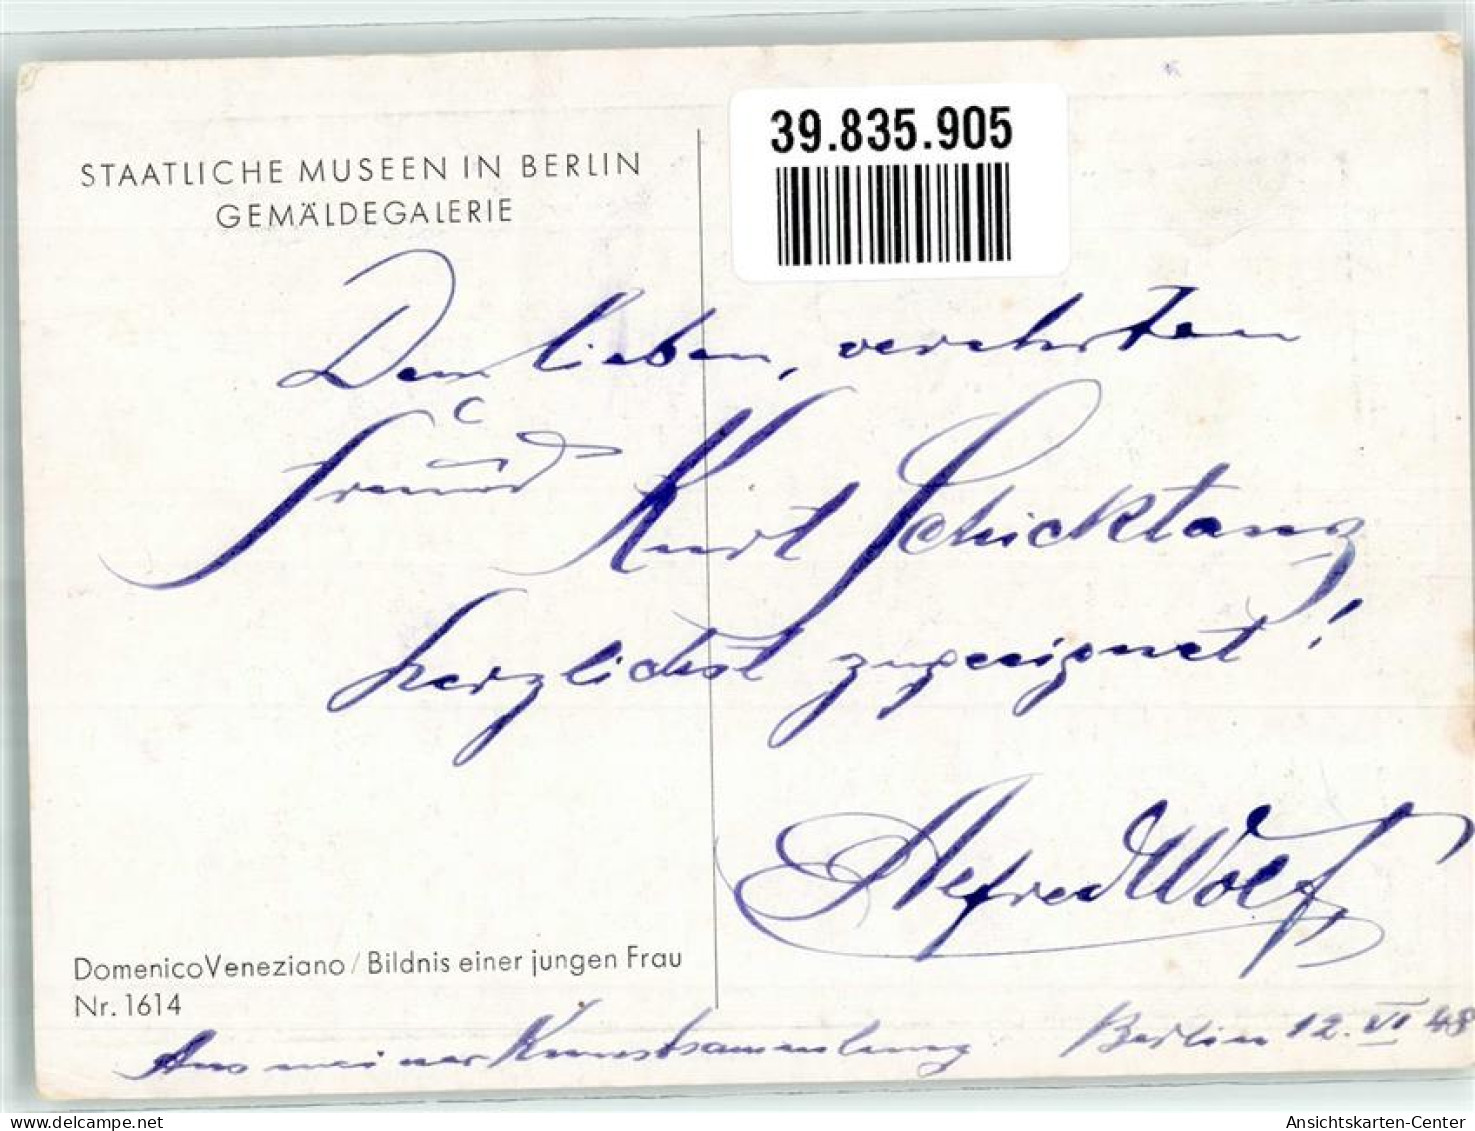 39.835.905
STAATLICHE MUSEEN IN BERLIN
GEMÄLDEGALERIE
Dem lieben, verehrten
Freund Kurt Schicktanz
herzlichst zugeeignet!
Alfred Wolf,
Domenico Veneziano / Bildnis einer jungen Frau
Nr. 1614
Aus meiner Kunstsammlung
Berlin 12. VI 48
delcampe.net
Ansichtskarten-Center